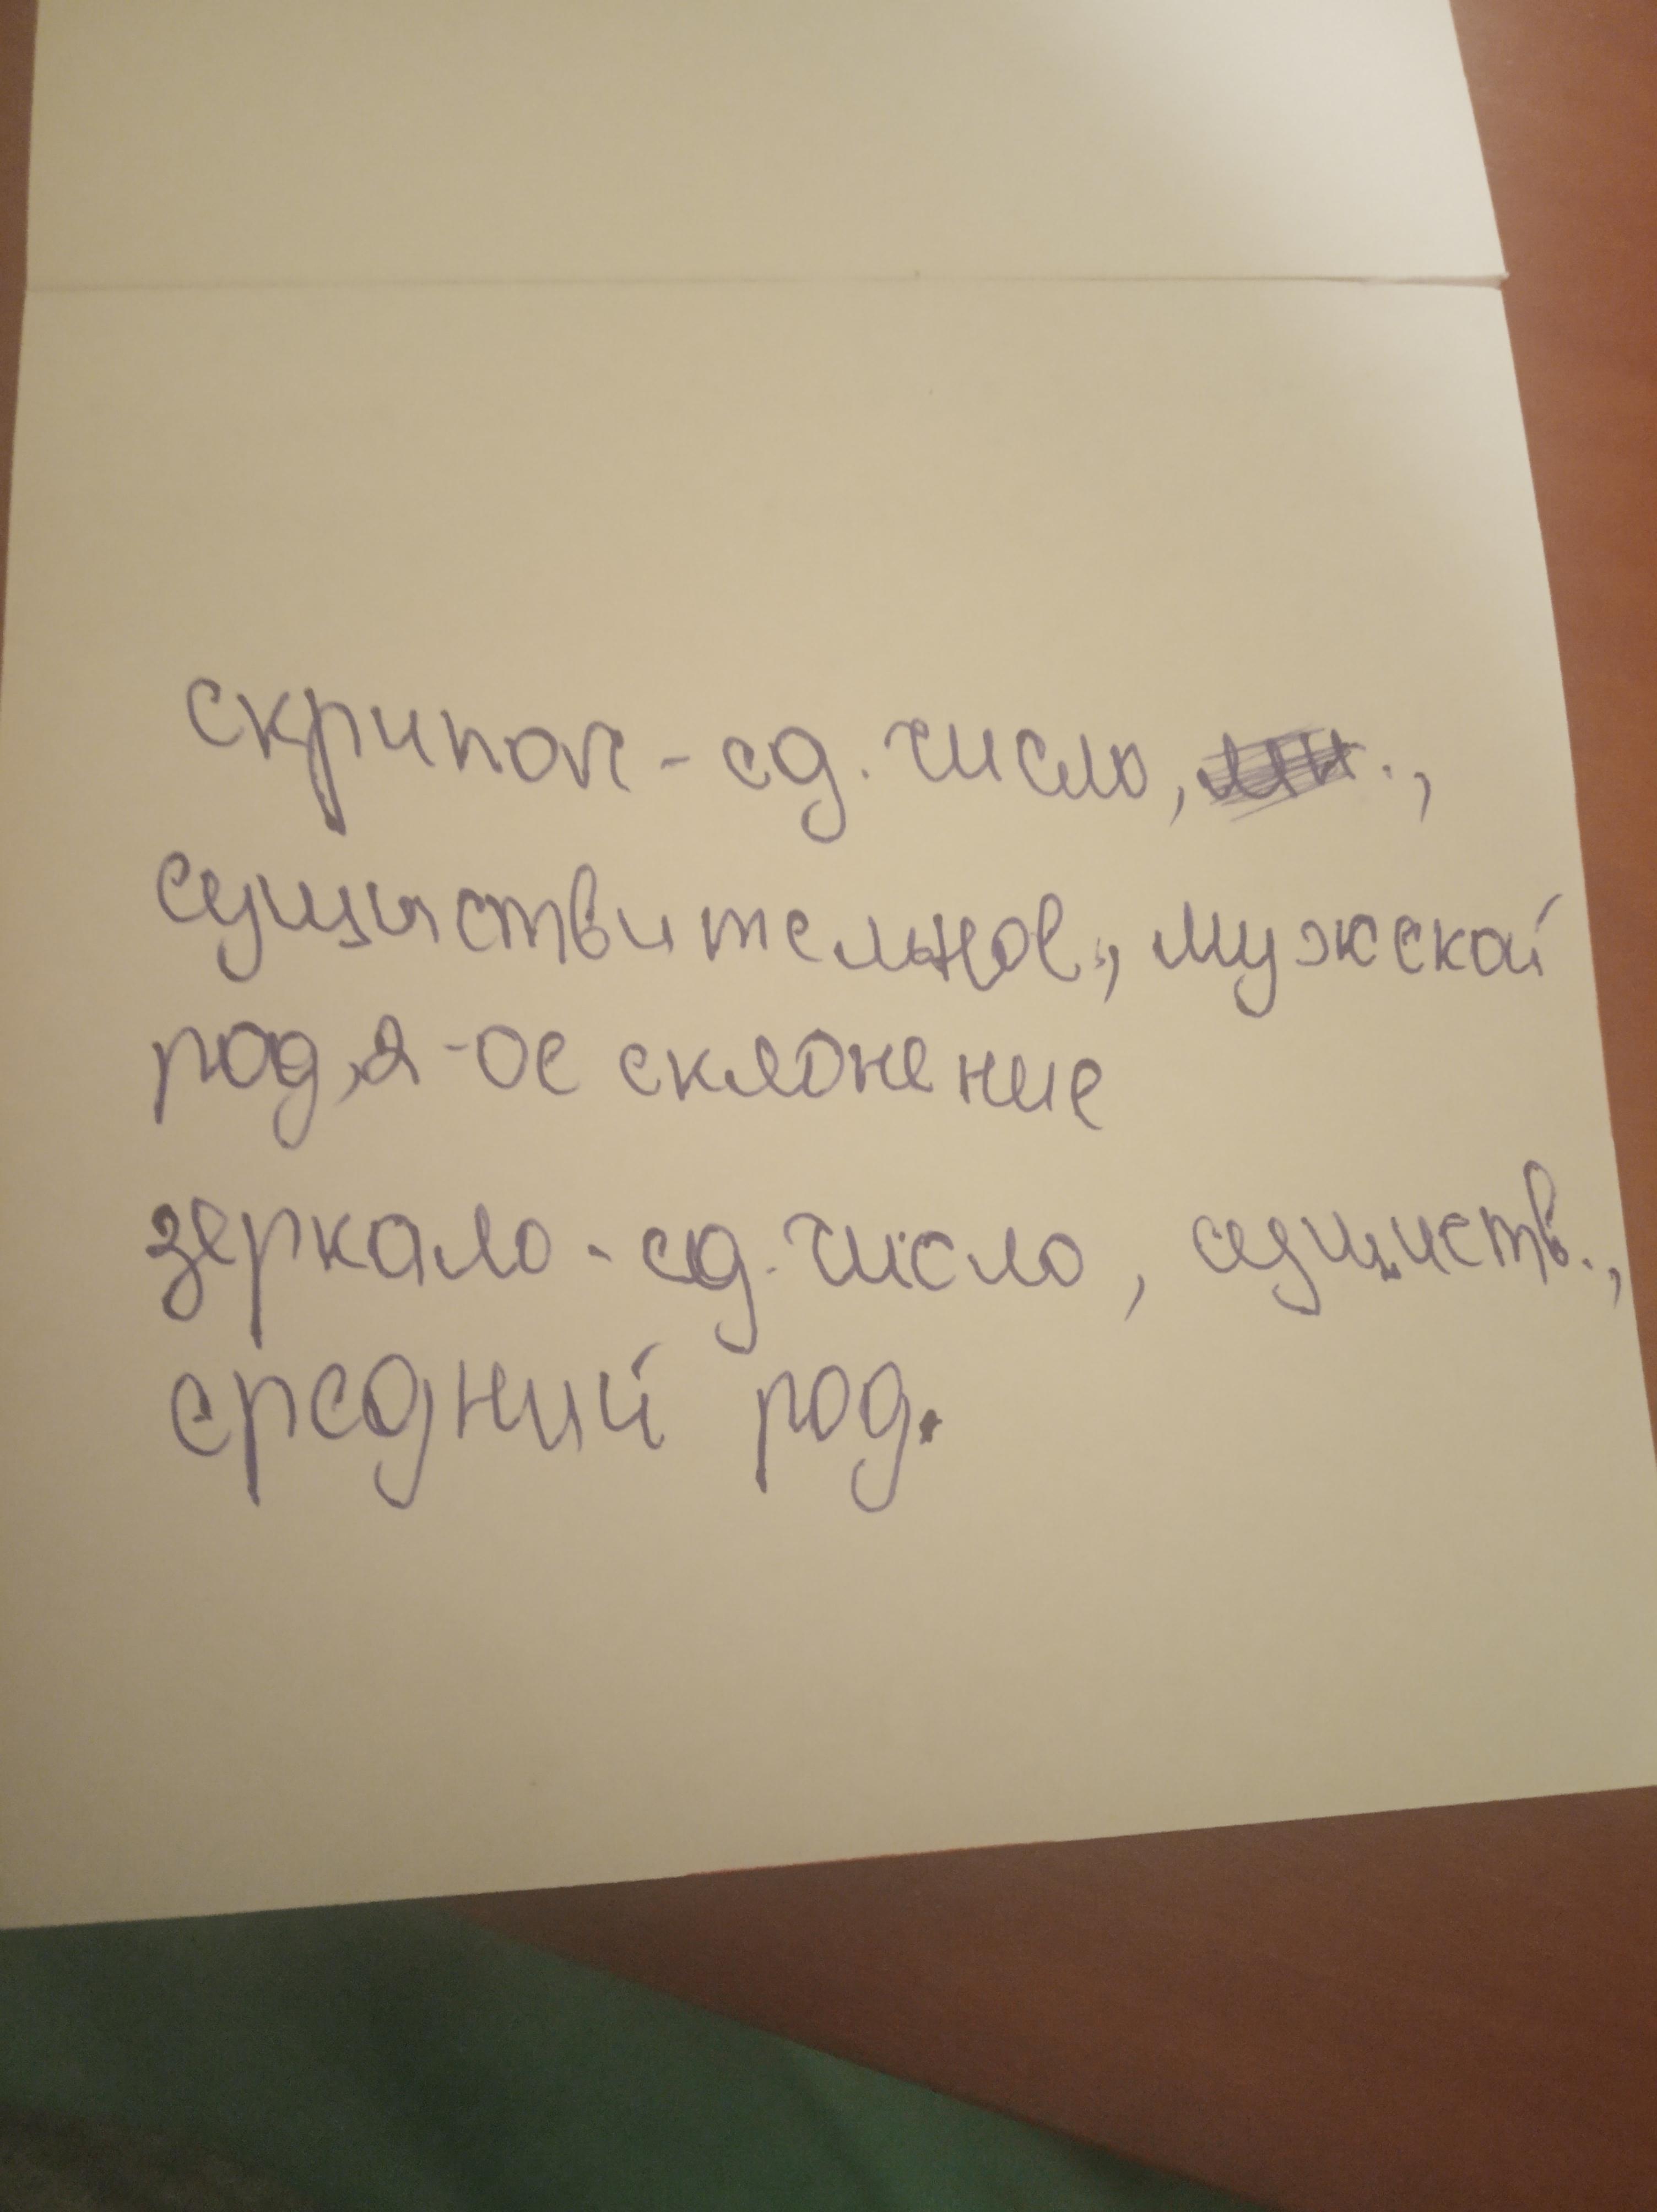 скрипок - ед. число, мн.,
сущиствительное, мужской
род, 2-ое склонение
зеркало - ед. число, сущиств.,
средний род.